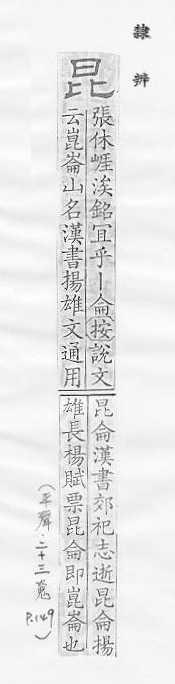 隸辨
昆
張休崕涘銘冝乎丨侖按說文
云崑崙山名漢書揚雄文通用
昆侖漢書郊祀志逝昆侖揚
雄長楊賦票昆侖即崑崙也
(平聲·二十三魂 P.149)